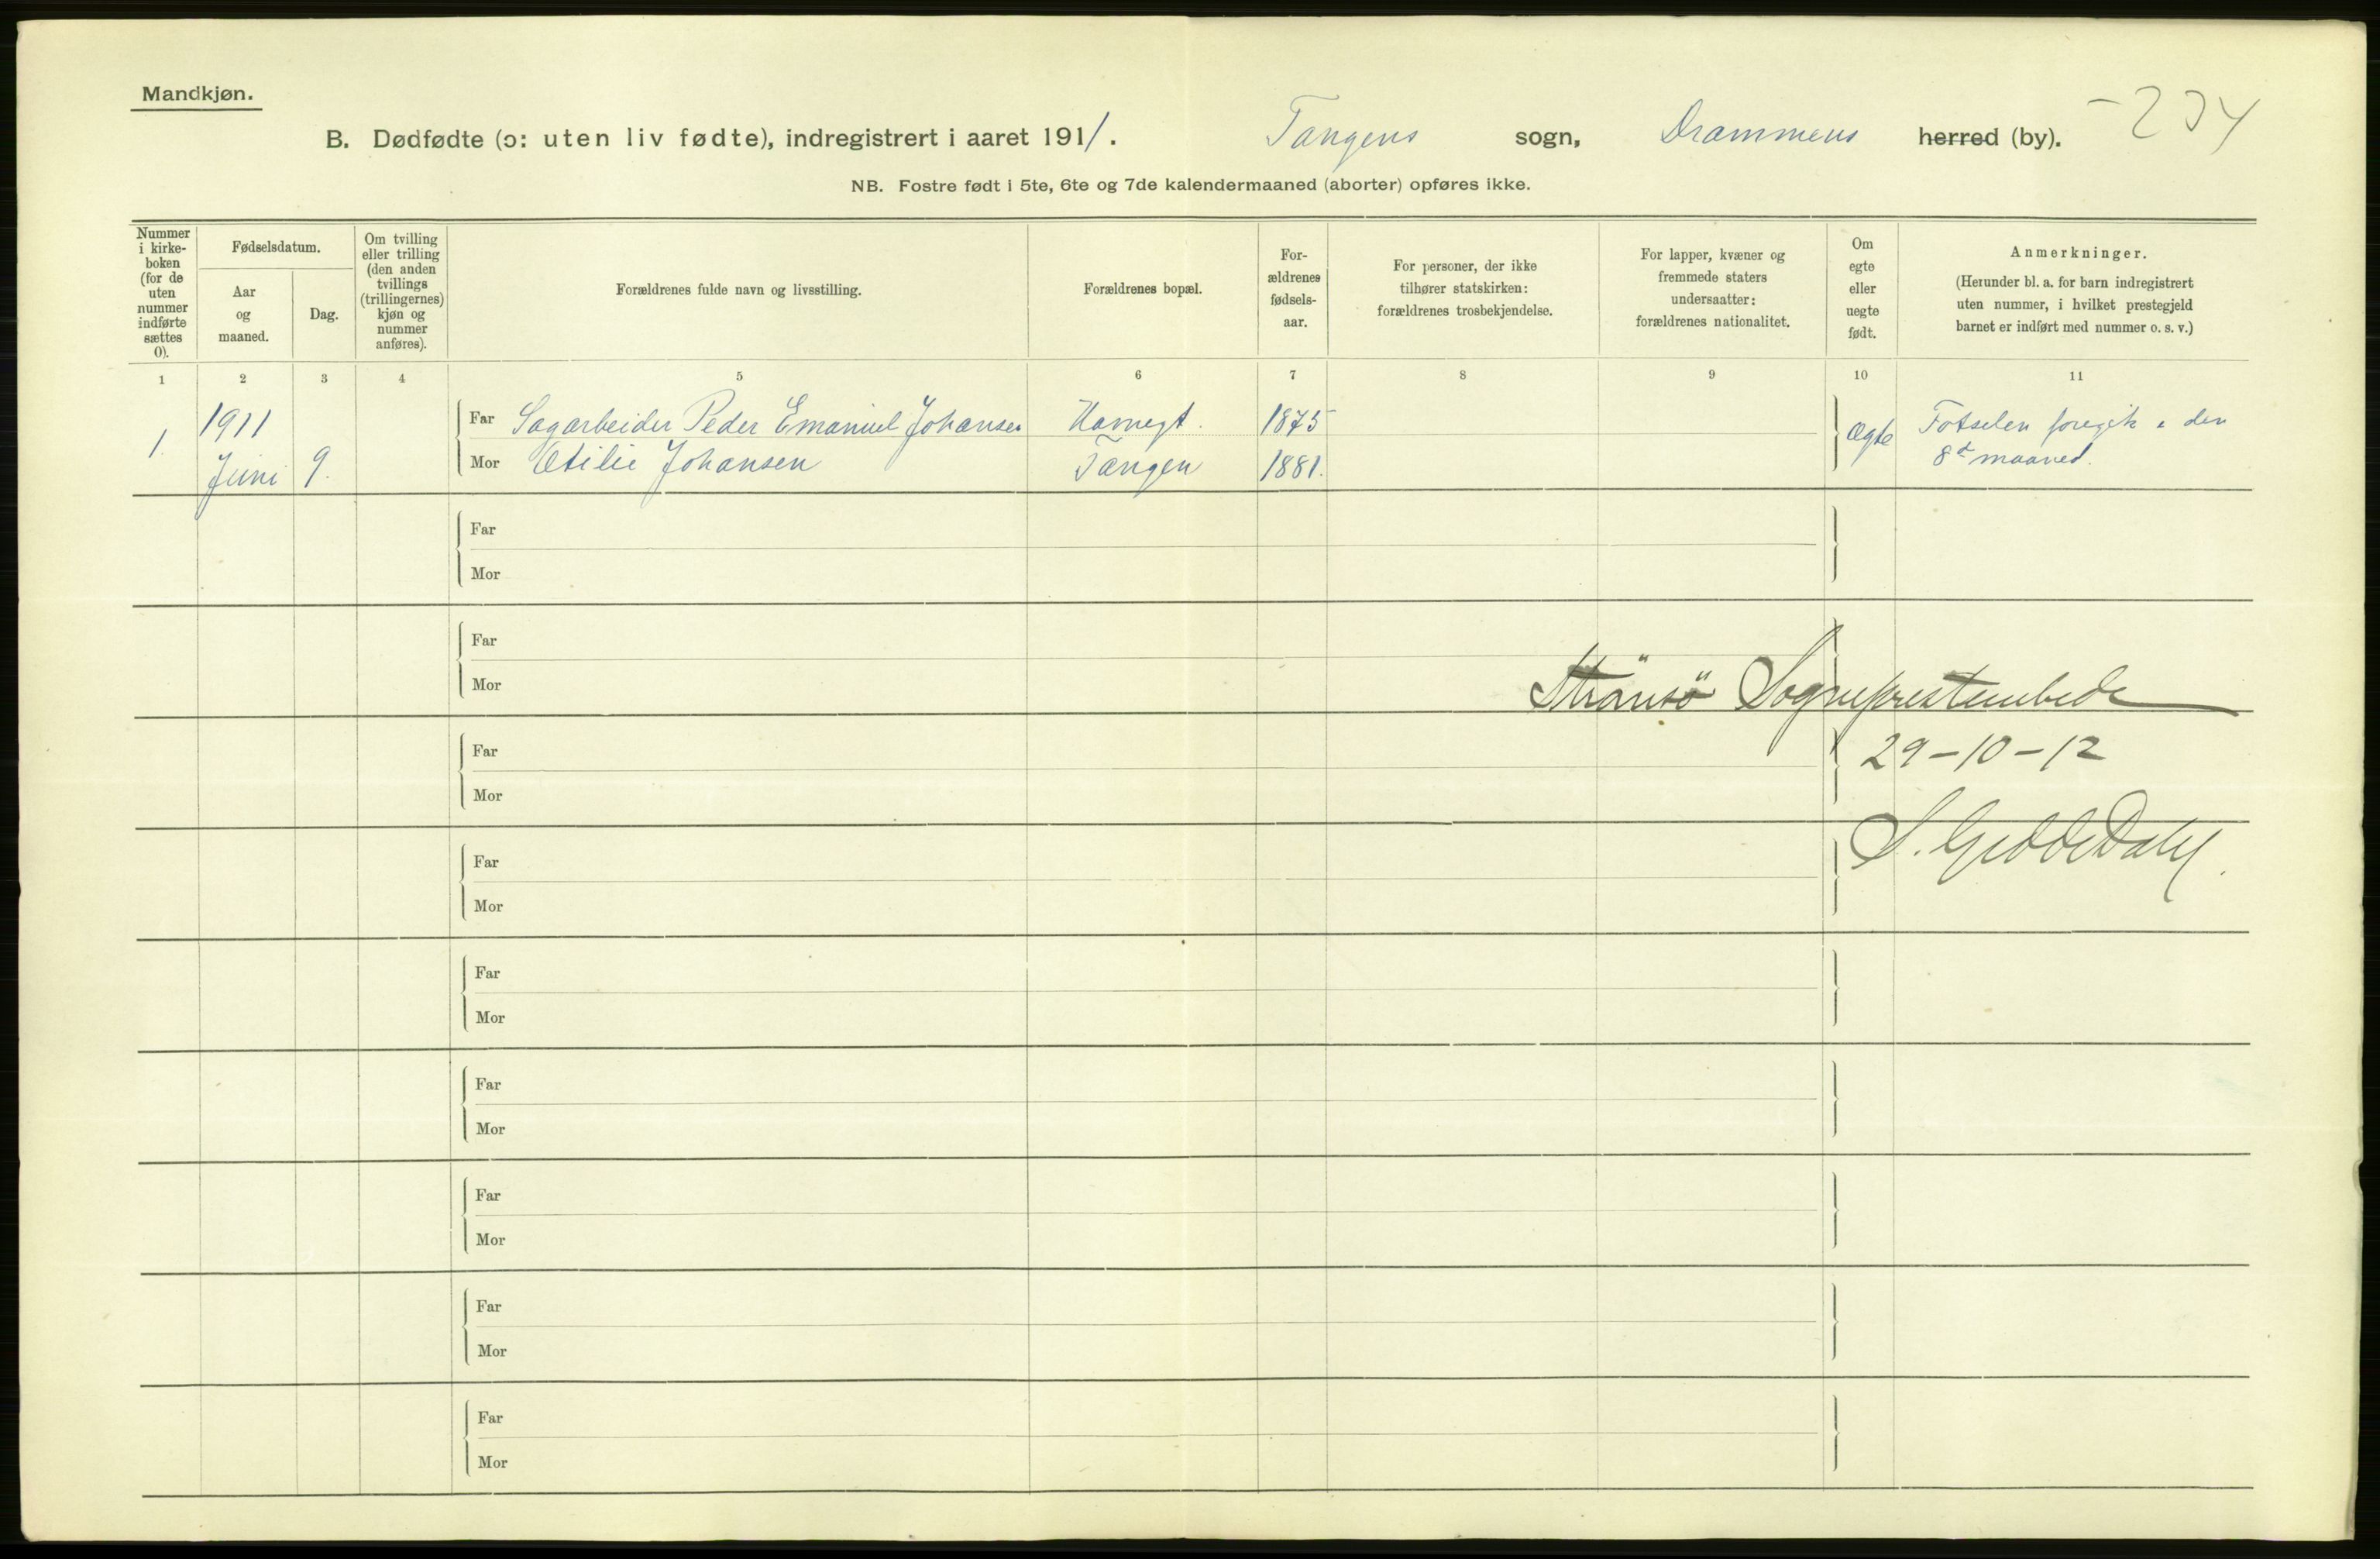 Mandkjøn.
B. Dødfødte (ɔ: uten liv fødte), indregistrert i aaret 1911. Tangens sogn, Drammens herred (by). -234
NB. Fostre født i 5te, 6te og 7de kalendermaaned (aborter) opføres ikke.
Nummer i kirke- boken (for de uten nummer indførte sættes 0).
Fødselsdatum.
Aar og maaned.
Dag.
Om tvilling eller trilling (den anden tvillings (trillingernes) kjøn og nummer anføres).
Forældrenes fulde navn og livsstilling.
Forældrenes bopæl.
For- ældrenes fødsels- aar.
For personer, der ikke tilhører statskirken: forældrenes trosbekjendelse.
For lapper, kvæner og fremmede staters undersaatter: forældrenes nationalitet.
Om egte eller uegte født.
Anmerkninger.
(Herunder bl. a. for barn indregistrert uten nummer, i hvilket prestegjeld barnet er indført med nummer o. s. v.)
1 2 3 4 5 6 7 8 9 10 11
1. 1911 Far Sagarbeider Peder Emanuel Johansen 1875 Ægte Fötselen foregik i den
Juni 9. Mor Otilie Johansen Tangen 1881. 8d maaned.
Far
Mor
Far
Mor
Strömsö Sogneprestembede
Far
29-10-12
Mor
Far
Mor
Far
Mor
Far
Mor
Far
Mor
Far
Mor
Far
Mor